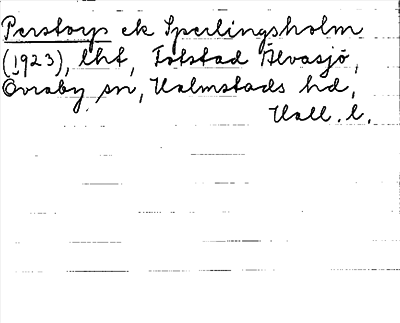 Perstorp ek Sperlingsholm
(1923), lht, Tolstad Älvasjö,
Övraby sn, Halmstads hd,
Hall. l.